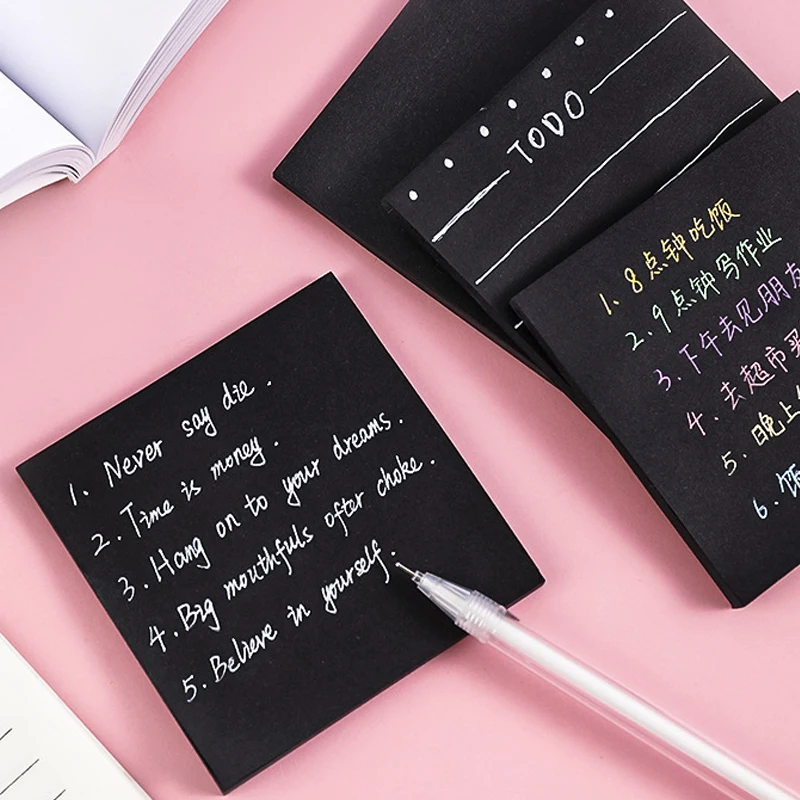 TODO
1. Never say die.
2. Time is money.
3. Hang on to your dreams.
4. Big mouthfuls ofter choke.
5. Believe in yourself.
1、8点钟吃饭
2.9点钟写作业
3.下午去见朋友
4.去超市买
5.晚上
6.饭